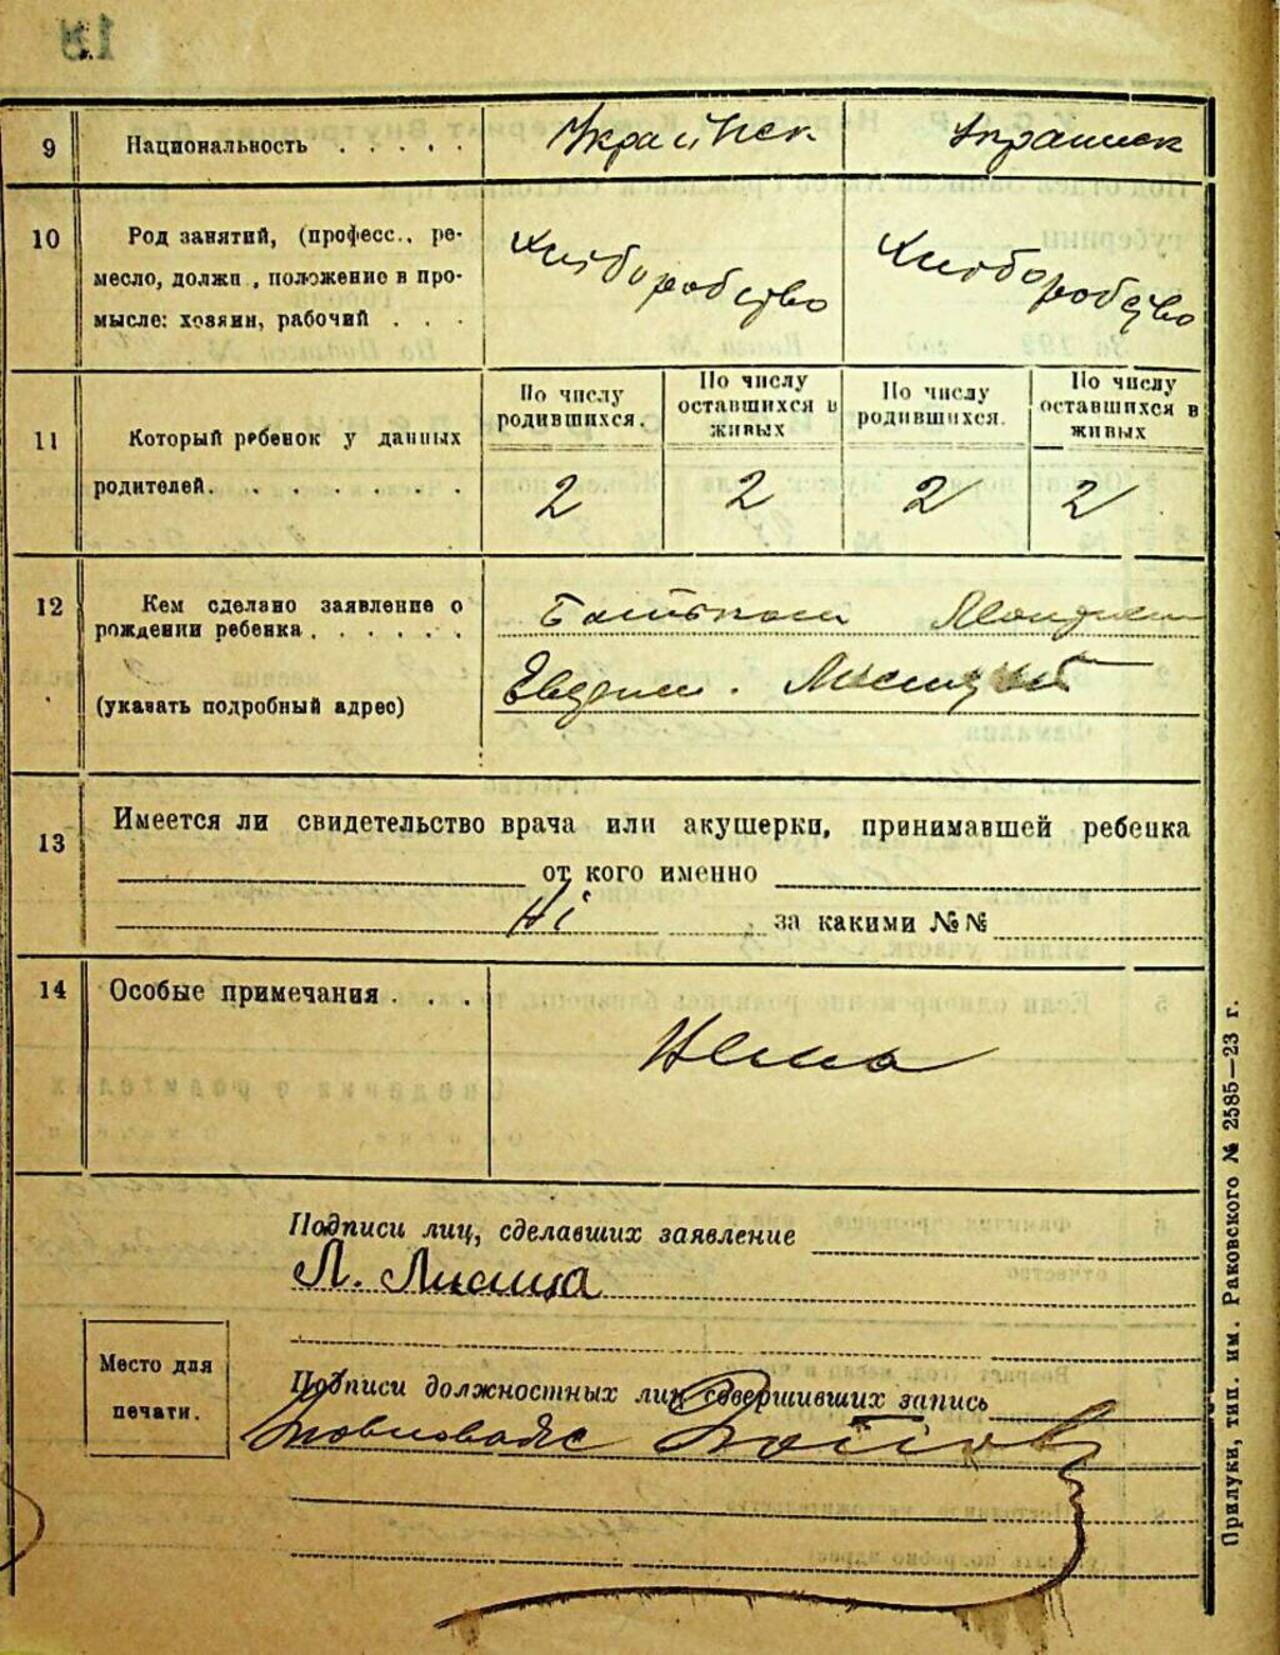 9 Национальность . . . . . Украінск Украинск
10 Род занятий, (професс., ре-
месло, должн , положение в про-
мысле: хозяин, рабочий . . .
Хліборобство Хліборобство
По числу родившихся. По числу оставшихся в живых По числу родившихся. По числу оставшихся в живых
11 Который ребенок у данных
родителей. . . . . . . . 2 2 2 2
12 Кем сделано заявление о
рождении ребенка . . . . . . Батьком
(указать подробный адрес)
13 Имеется ли свидетельство врача или акушерки, принимавшей ребенка
от кого именно
Ні за какими №№
14 Особые примечания . . . Нема
Подписи лиц, сделавших заявление
Л. Лисица
Место для
печати.
Подписи должностных лиц совершивших запись
Прилуки, тип. им. Раковского № 2585—23 г.